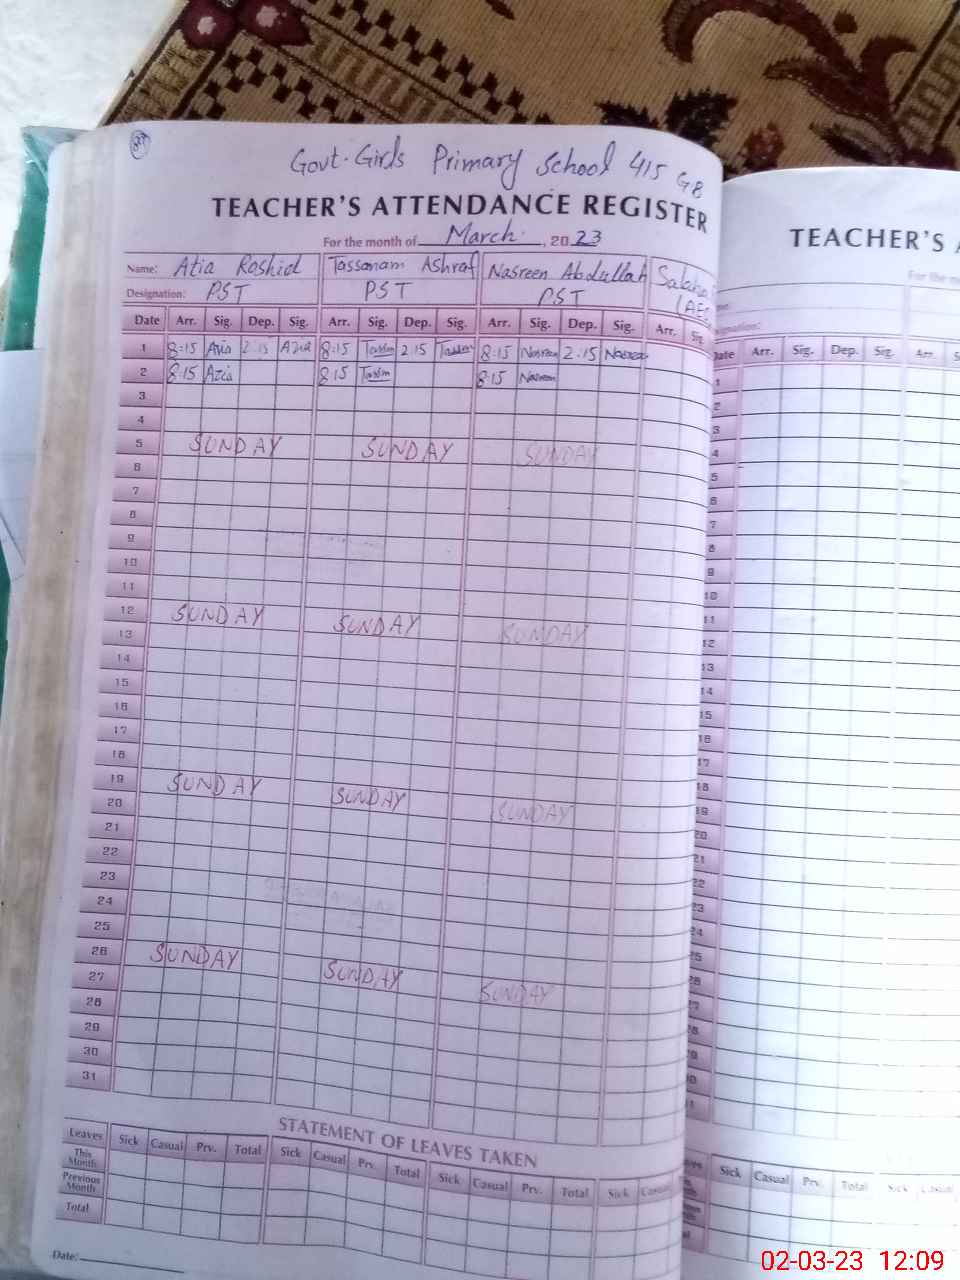 Govt. Girls Primary School 415 GB
TEACHER'S ATTENDANCE REGISTER
For the month of March, 2023
Name: Atia Rashid Tassanam Ashraf Nasreen Abdullah
Designation: PST PST PST
Date Arr. Sig. Dep. Sig. Arr. Sig. Dep. Sig. Arr. Sig. Dep. Sig. Arr. Sig.
1 8:15 Atia 2:15 Atia 8:15 2:15 8:15 Nasreen 2:15 Nasreen
2 8:15 Atia 8:15 8:15 Nasreen
3
4
5 SUNDAY SUNDAY SUNDAY
6
7
8
9
10
11
12 SUNDAY SUNDAY SUNDAY
13
14
15
16
17
18
19 SUNDAY SUNDAY SUNDAY
20
21
22
23
24
25
26 SUNDAY SUNDAY SUNDAY
27
28
29
30
31
STATEMENT OF LEAVES TAKEN
Leaves Sick Casual Prv. Total Sick Casual Prv. Total Sick Casual Prv. Total Sick Casual
This Month
Previous Month
Total
Date:
TEACHER'S
For the
Date Arr. Sig. Dep. Sig. Arr.
1
2
3
4
5
6
7
8
9
10
11
12
13
14
15
16
17
18
19
20
21
22
23
24
25
26
27
28
Sick Casual Prv. Total Sick Casual
02-03-23 12:09